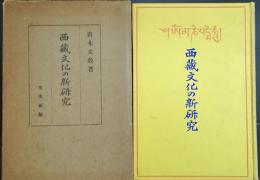 青木文教著
西藏文化の新研究
有光社版
西藏文化の新研究